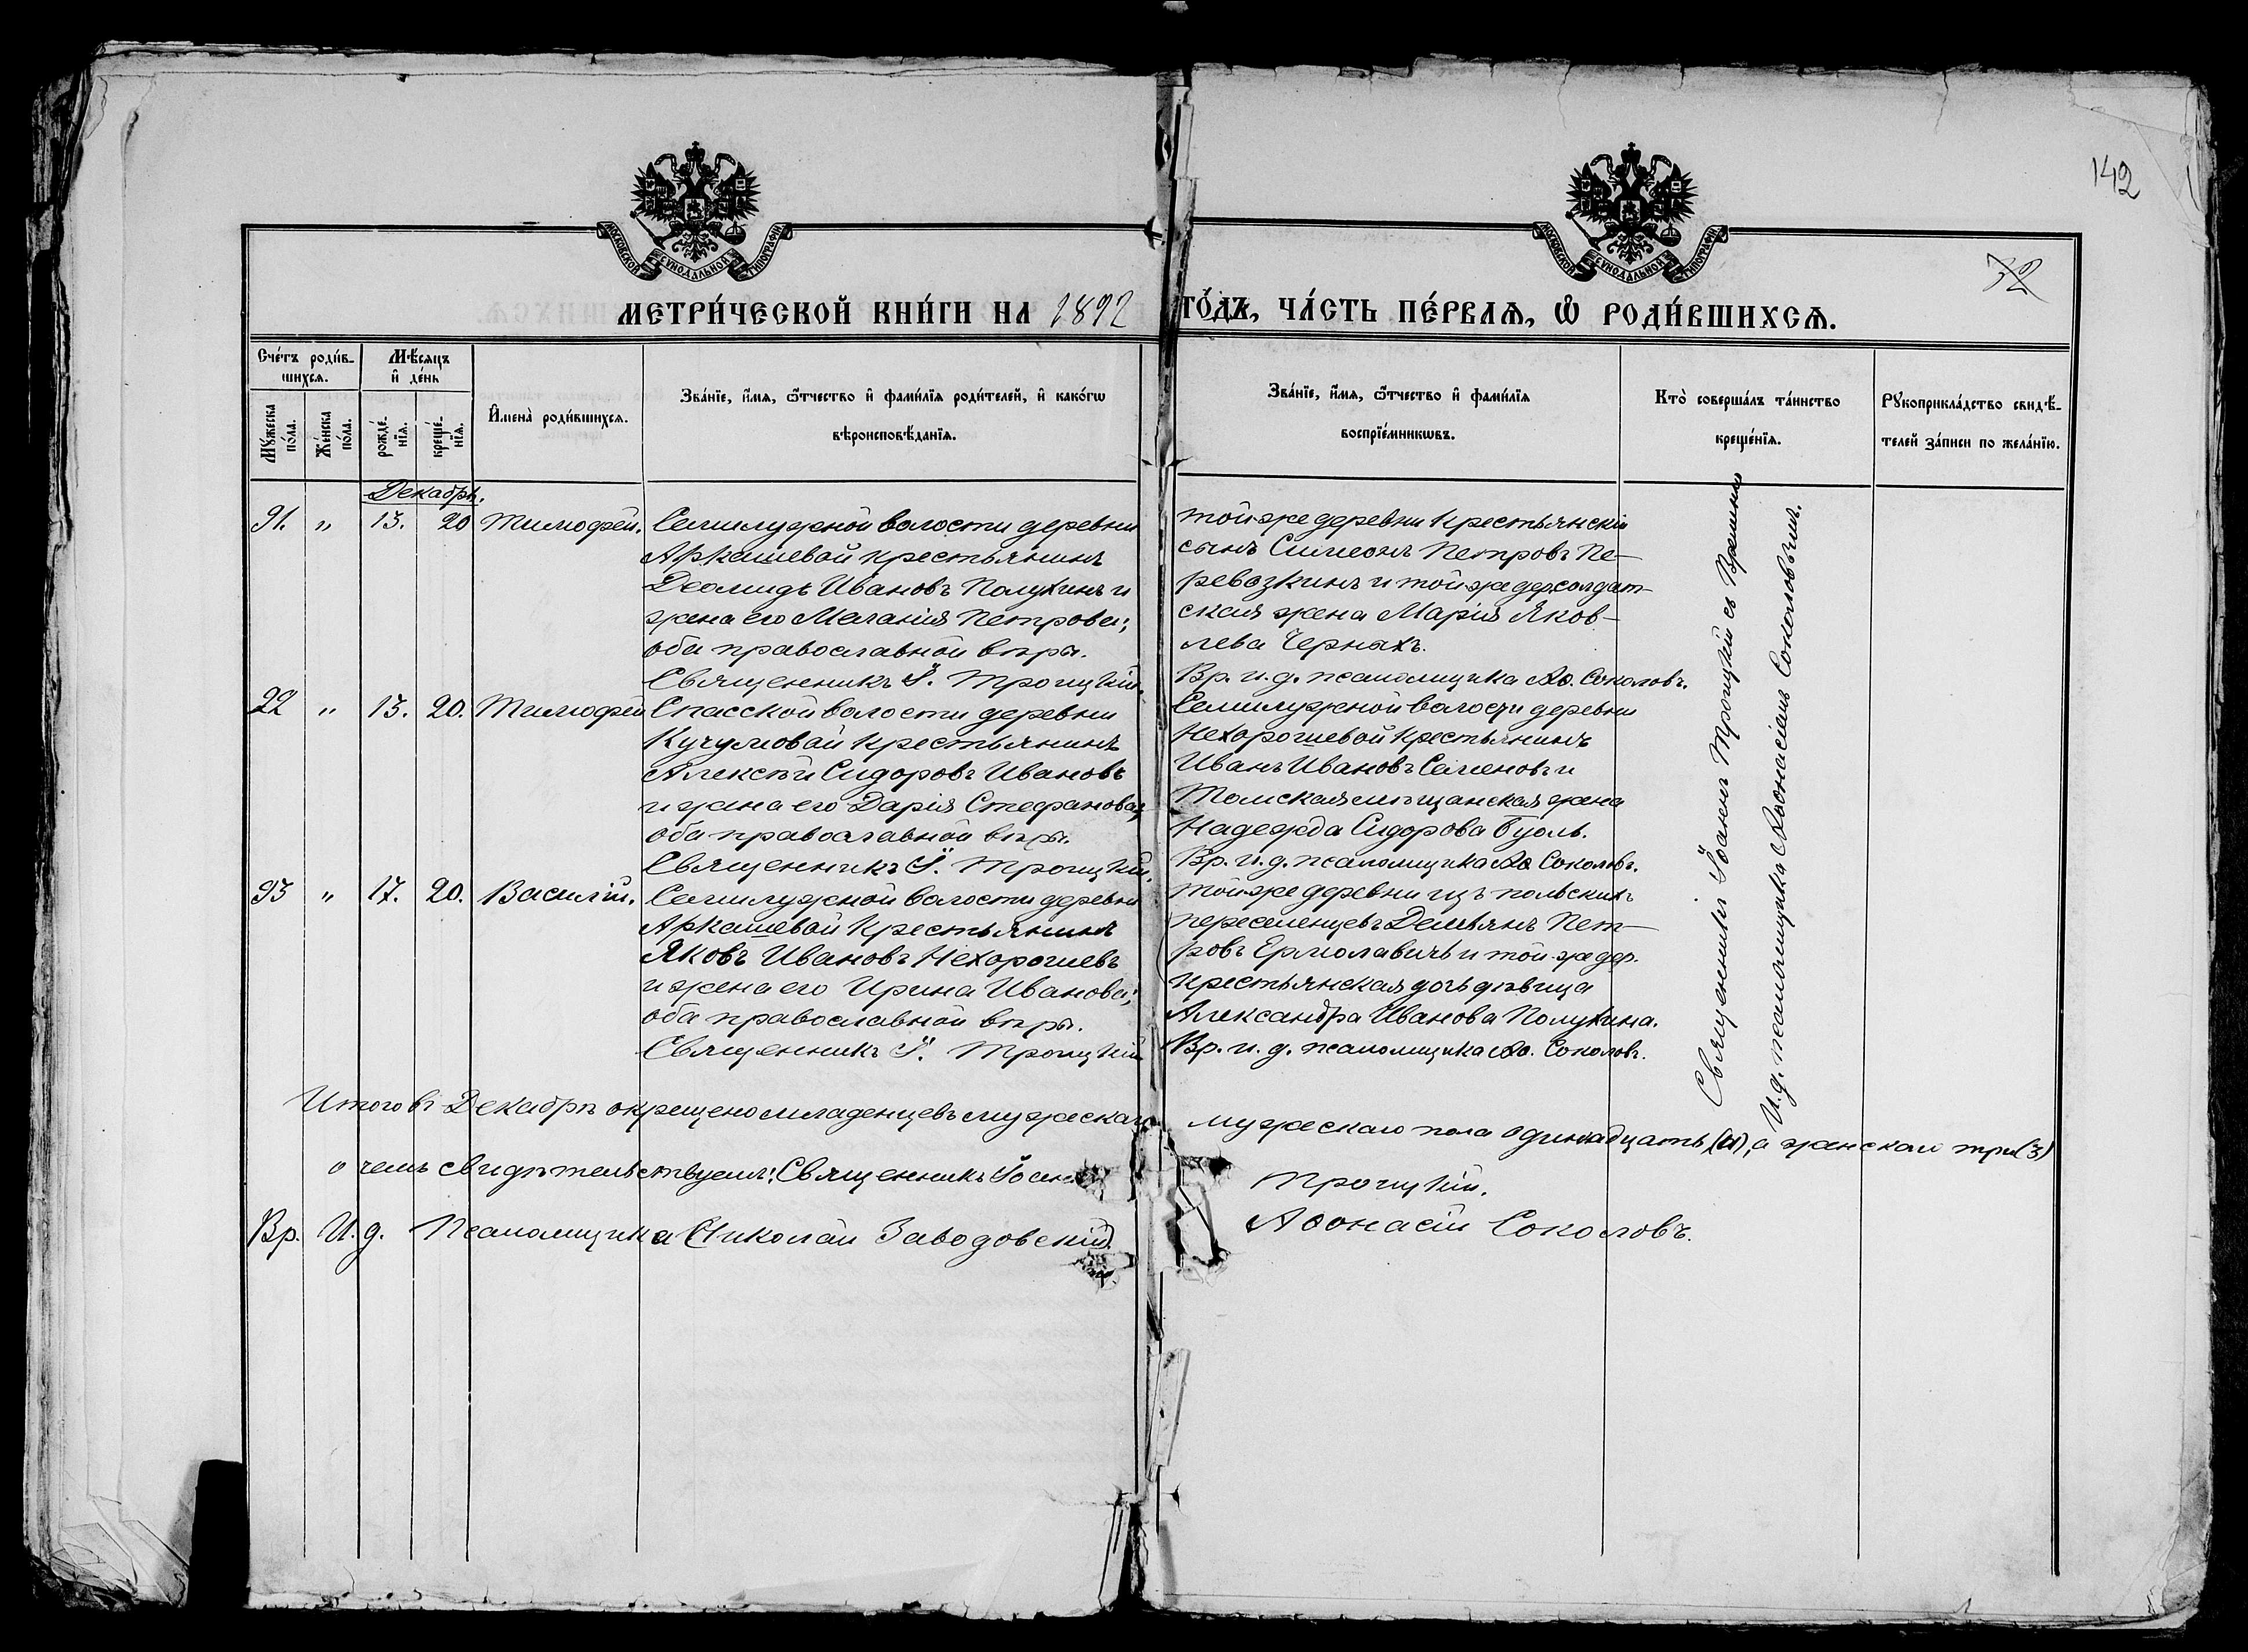 142
32
МОСКОВСКОЙ СѴНОДАЛЬНОЙ ТИПОГРАФІИ
МОСКОВСКОЙ СѴНОДАЛЬНОЙ ТИПОГРАФІИ
МЕТРИ́ЧЕСКОЙ КНИ́ГИ НА 1892 ГО́ДЪ, ЧА́СТЬ ПЕ́РВАѦ, Ѡ҆ РОДИ́ВШИХСѦ.
Сче́тъ роди́в-
шихсѧ.
Мѣ́сѧцъ
и҆ де́нь
Мꙋ́жеска по́ла.
Же́нска по́ла.
рожде́-
нїѧ.
креще́-
нїѧ.
И҆мена̀ роди́вшихсѧ.
Зва́нїе, и҆́мѧ, ѻ҆́тчество и҆ фами́лїѧ роди́телей, и҆ како́гѡ
вѣроисповѣ́данїѧ.
Зва́нїе, и҆́мѧ, ѻ҆́тчество и҆ фами́лїѧ
воспрїе́мникѡвъ.
Кто̀ соверша́лъ та́инство
креще́нїѧ.
Рꙋкоприкла́дство свидѣ́-
телей за́писи по жела́нїю.
Декабрь.
91. " 13. 20 Тимофей. Семилужной волости деревни
Аркашевой крестьянинъ
Деомидъ Ивановъ Полухинъ и
жена его Маланія Петрова;
оба православной вѣры.
Священникъ І. Троицкій.
тойже деревни крестьянскій
сынъ Симеонъ Петровъ Пе-
ревозкинъ и тойже дер. солдат-
ская жена Марія Яков-
лева Черныхъ.
Вр. и. д. псаломщика Аѳ. Соколовъ.
22 " 13. 20. Тимофей Спасской волости деревни
Кучумовой крестьянинъ
Алексѣй Сидоровъ Ивановъ
и жена его Дарія Стефанова;
оба православной вѣры.
Священникъ І. Троицкій.
Семилужной волости деревни
Нехорошевой крестьянинъ
Иванъ Ивановъ Семеновъ и
Томская мѣщанская жена
Надежда Сидорова
Вр. и. д. псаломщика Аѳ. Соколовъ.
93 " 17. 20. Василій. Семилужной волости деревни
Аркашевой крестьянинъ
Яковъ Ивановъ Нехорошевъ
и жена его Ирина Иванова;
оба православной вѣры.
Священникъ І. Троицкій
тойже деревни изъ польскихъ
переселенцевъ Демьянъ Пет-
ровъ Ермолавичъ и той-же дер.
крестьянская дочь дѣвица
Александра Иванова Полухина.
Вр. и. д. псаломщика Аѳ. Соколовъ.
Священникъ Іоаннъ Троицкій съ Временно
И. д. псаломщика Аѳонасіемъ Соколовымъ.
Итого въ Декабрѣ окрещено младенцевъ мужескаго мужескаго пола одинадцать (11), а женскаго три (3)
о чемъ свидѣтельствуемъ: Священникъ Іоаннъ Троицкій.
Вр. И. д. Псаломщика (Николай Заводовскій) Аѳонасій Соколовъ.